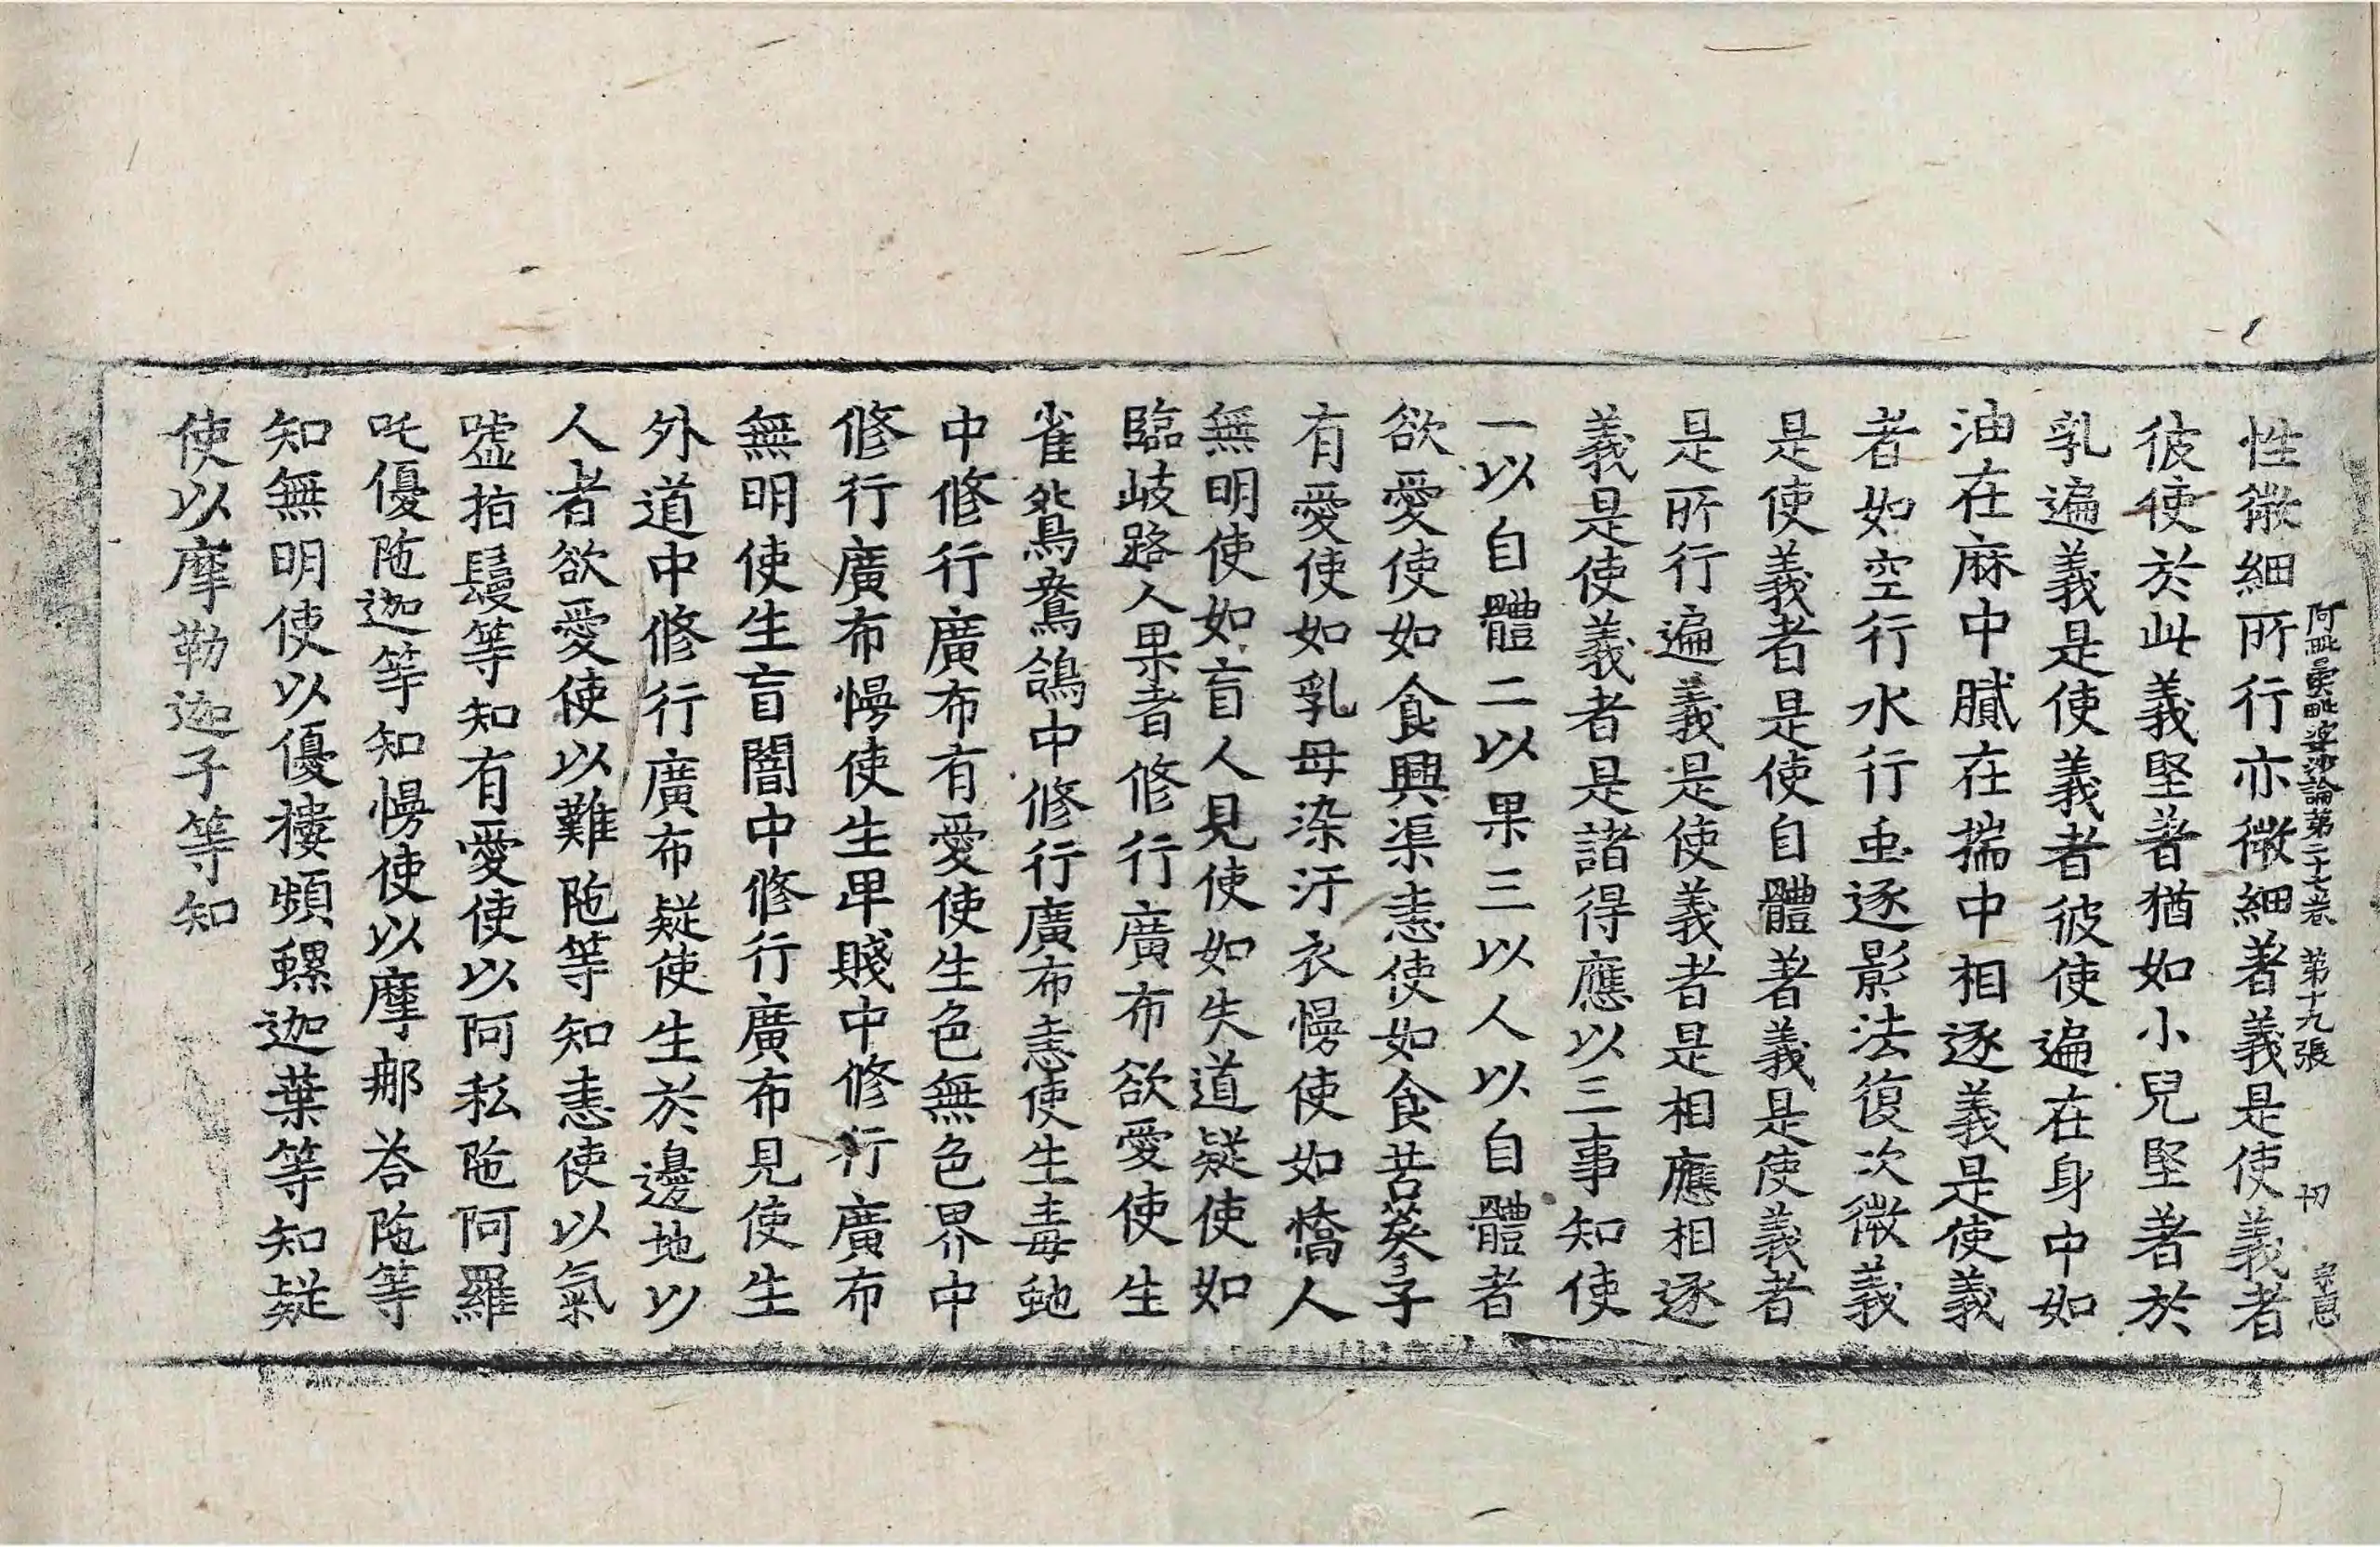 阿毗曇毗婆沙論第二十七卷 第十九張 切 宗息
性微細所行亦微細著義是使義者
彼使於此義堅著猶如小兒堅著於
乳遍義是使義者彼使遍在身中如
油在麻中膩在揣中相逐義是使義
者如空行水行䖝逐影法復次微義
是使義者是使自體著義是使義者
是所行遍義是使義者是相應相逐
義是使義者是諸得應以三事知使
一以自體二以果三以人以自體者
欲愛使如食興渠恚使如食苦蔘子
有愛使如乳母染汙衣慢使如憍人
無明使如盲人見使如失道疑使如
臨岐路人果者修行廣布欲愛使生
雀鴛鴦鴿中修行廣布恚使生毒虵
中修行廣布有愛使生色無色界中
修行廣布慢使生卑賤中修行廣布
無明使生盲闇中修行廣布見使生
外道中修行廣布疑使生於邊地以
人者欲愛使以難陁等知恚使以氣
噓指鬘等知有愛使以阿私陁阿羅
吒優陁迦等知慢使以摩那荅陁等
知無明使以優樓頻螺迦葉等知疑
使以摩勒迦子等知